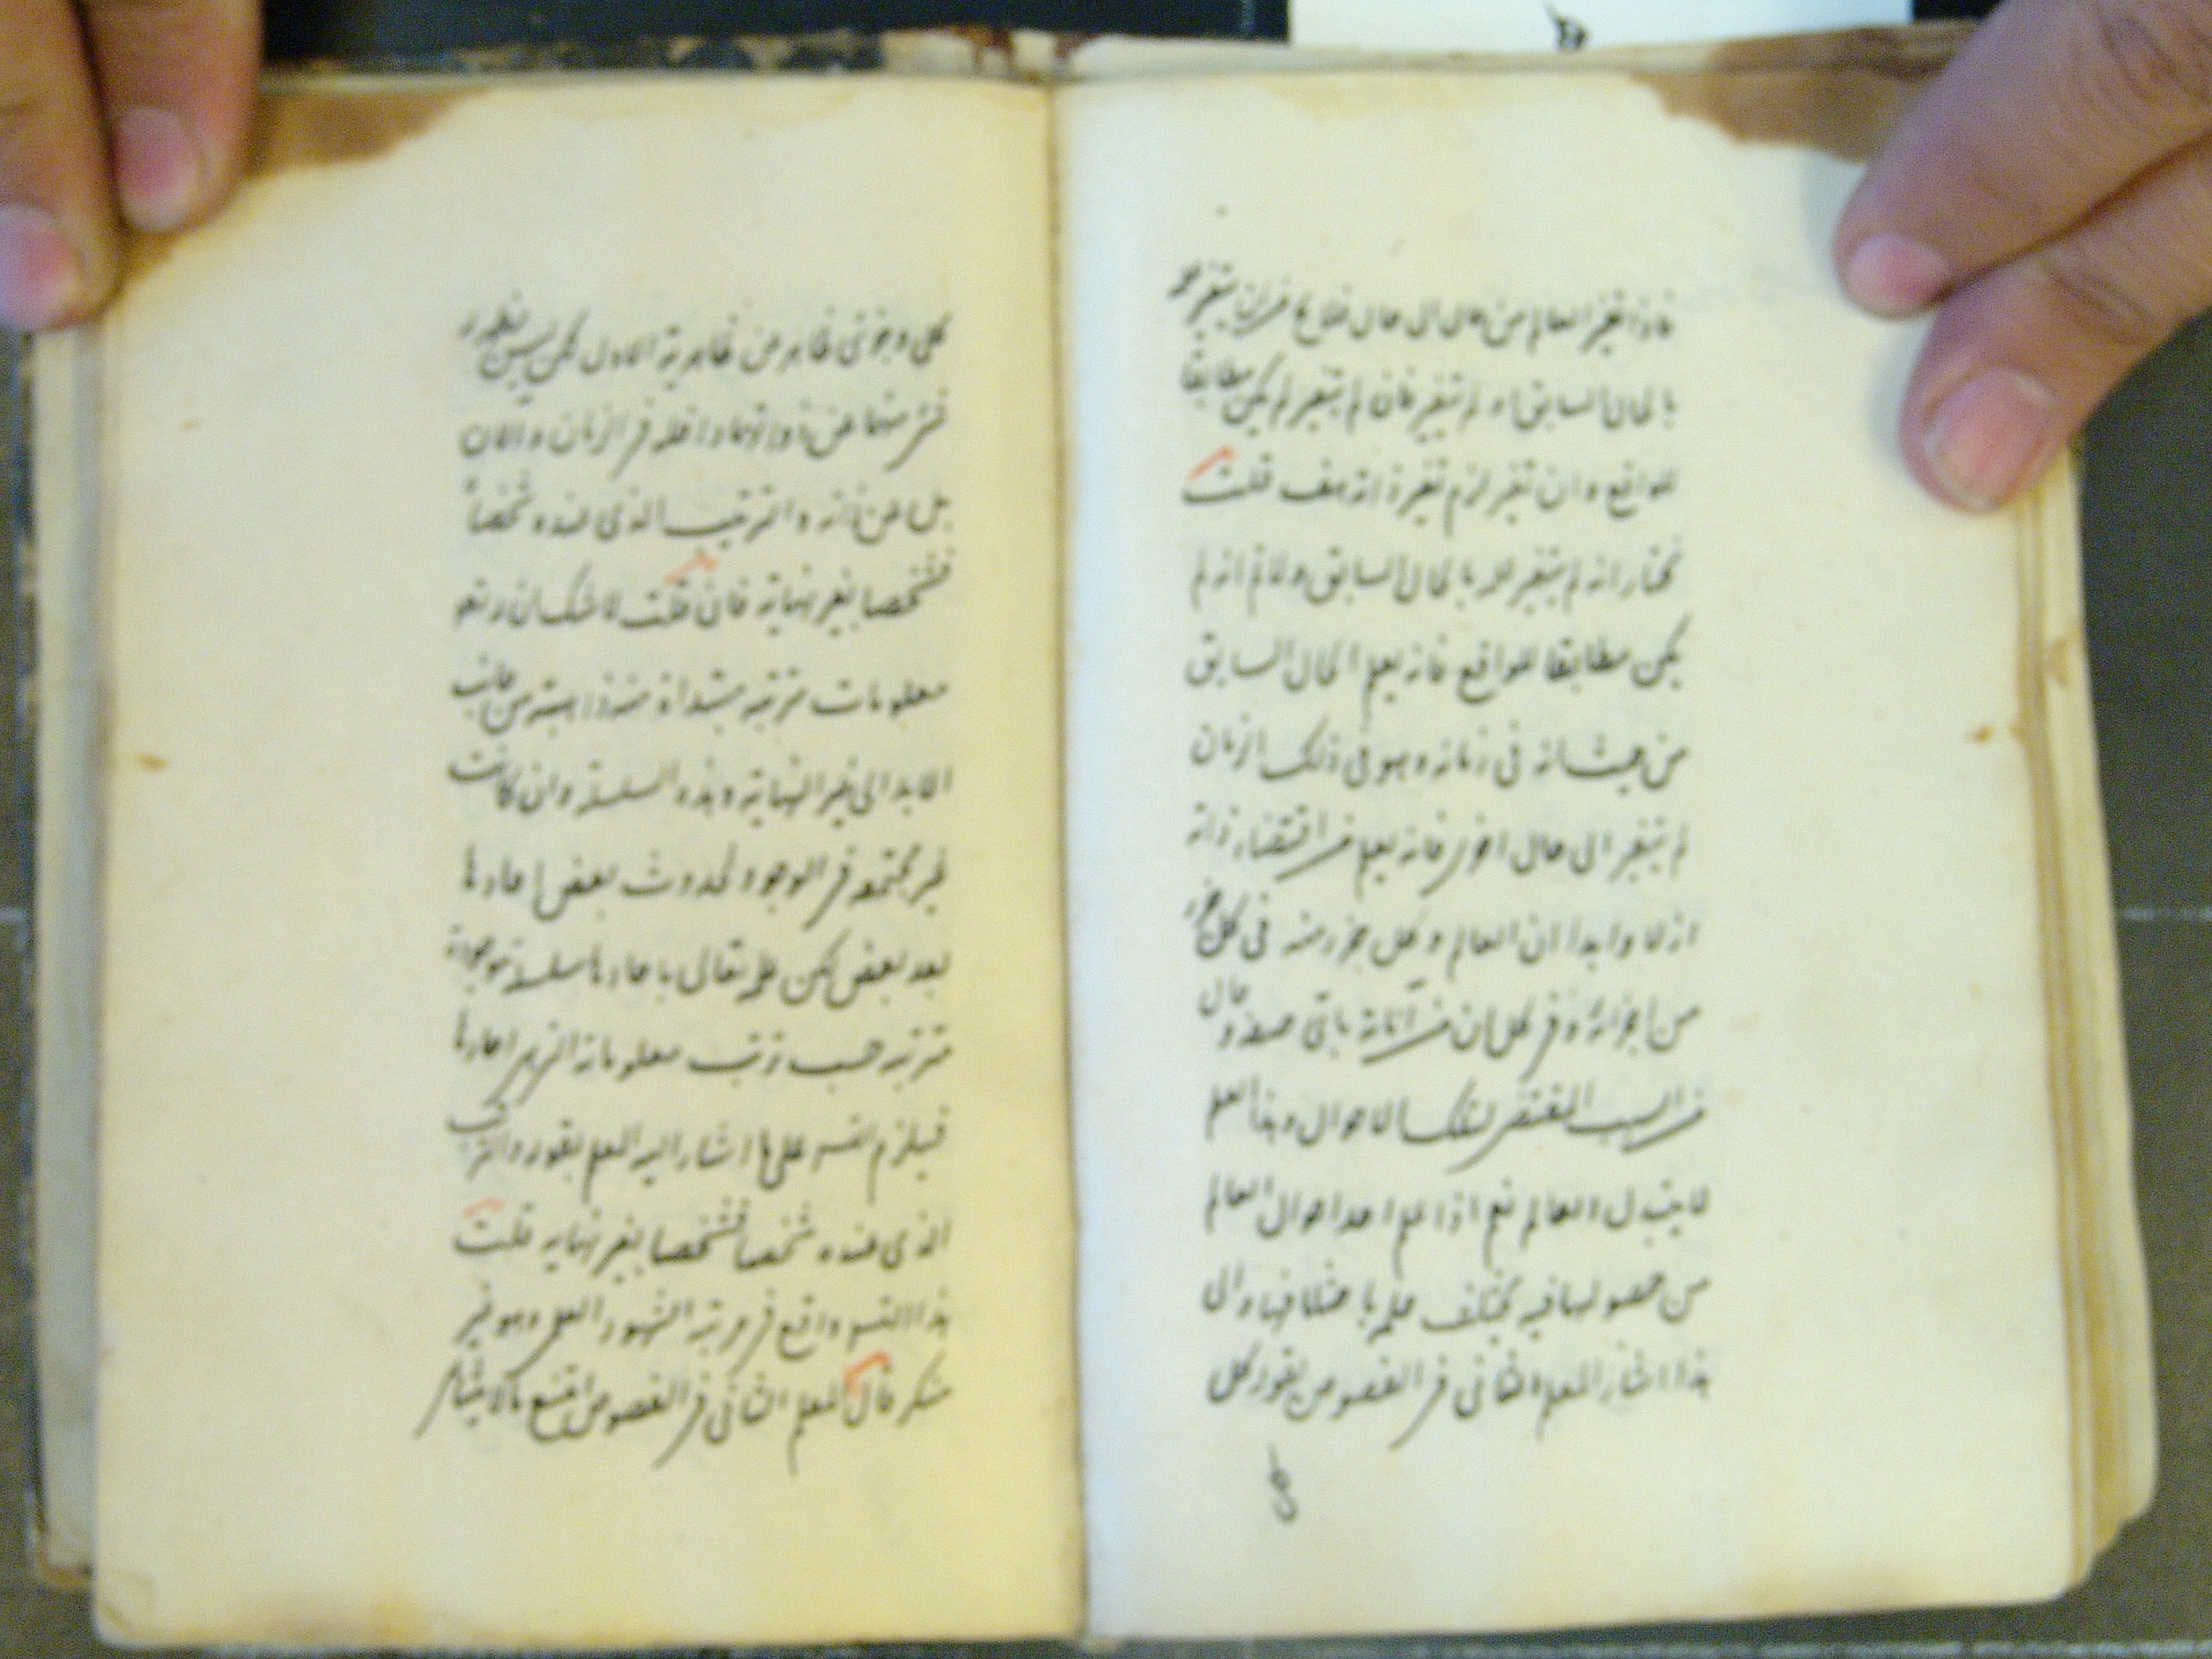 فاذا تغير العالم من حال الى حال فلا يخ من ان يتغير
بالحال السابق او لم يتغير فان لم يتغير لم يكن مطابقا
للواقع وان تغير لزم تغير ذاته هف قلت
نختار انه لم يتغير بالحال السابق ولانم انه لم
يكن مطابقا للواقع فانه يعلم الحال السابق
من حيث انه فى زمانه وهو فى ذلك الزمان
لم يتغير الى حال اخرى فانه يعلم من اقتضاء ذاته
ازلا وابدا ان العالم وكل جزء منه فى كل جزء
من اجزائه وفى كل ان من آناته باى صفة وحال
من السبب المقتضى لتلك الاحوال وهذا العلم
لا يتبدل العالم نعم اذا علم احد احوال العالم
من حصولها فيه يختلف علمه باختلافها والى
هذا اشار المعلم الثانى فى الفصوص بقوله كل
كلى
كلى وجزئى ظاهر من ظاهرية الاول لكن ليس يظهر له
شئ منها عن ذواتها داخلة فى الزمان والان
بل عن ذاته والترتيب الذى عنده شخصاً
فشخصا بغير نهاية فان قلت لا شك ان له تعا
معلومات مترتبة مبتدأة من ذاهبة من جانب
الابد الى غير النهاية وهذه السلسلة وان كانت
غير مجتمعة فى الوجود لحدوث بعض احادها
بعد بعض لكن علمه تعالى باحادها سلسلة موجودة
مترتبة حسب ترتب معلوماته التى هى احادها
فيلزم التس على ما اشار اليه المعلم بقوله والترتيب
الذى عنده شخصاً فشخصا بغير نهايه قلت
هذا التس واقع فى مرتبة الشهود العلمى وهو غير
منكر قال المعلم الثانى فى الفصوص امتنع ما لا يتناهى